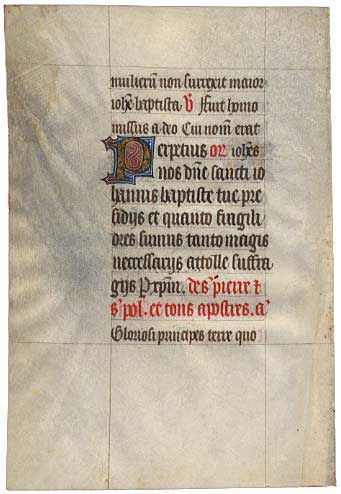 mulierū non surrexit maior
iohē baptista V̄ Fuit homo
missus a deo Cui nom̄ erat
Perpetuis or̄ iohēs
nos dn̄e sancti io
hannis baptiste tue pre
sidijs et quanto fragili
ores sumus tanto magis
necessarijs attolle suffra
gijs P xp̄m. des pierre ⁊
s' pol. et tous apostres. aͣ
Gloriosi principes terre quo